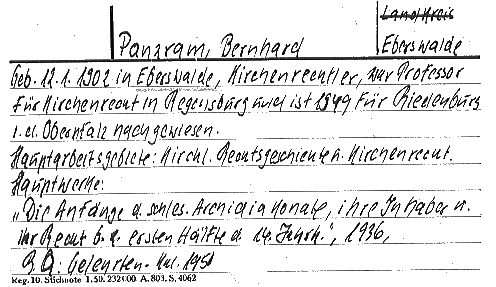 Land Kreis
Panzram, Bernhard
Eberswalde
Geb. 12.1.1902 in Eberswalde, Kirchenrechtler, war Professor
für Kirchenrecht in Regensburg und ist 1949 für Riedenburg
i. d. Oberpfalz nachgewiesen.
Hauptarbeitsgebiete: Kirchl. Rechtsgeschichte u. Kirchenrecht.
Hauptwerke:
„Die Anfänge d. schles. Archidiakonate, ihre Inhaber u.
ihr Recht b. z. ersten Hälfte d. 14. Jahrh.", 1936,
B.Q: Gelehrten-Kal. 1951
Reg. 10. Stichnote 1. 50. 232000. A. 803. S. 4062